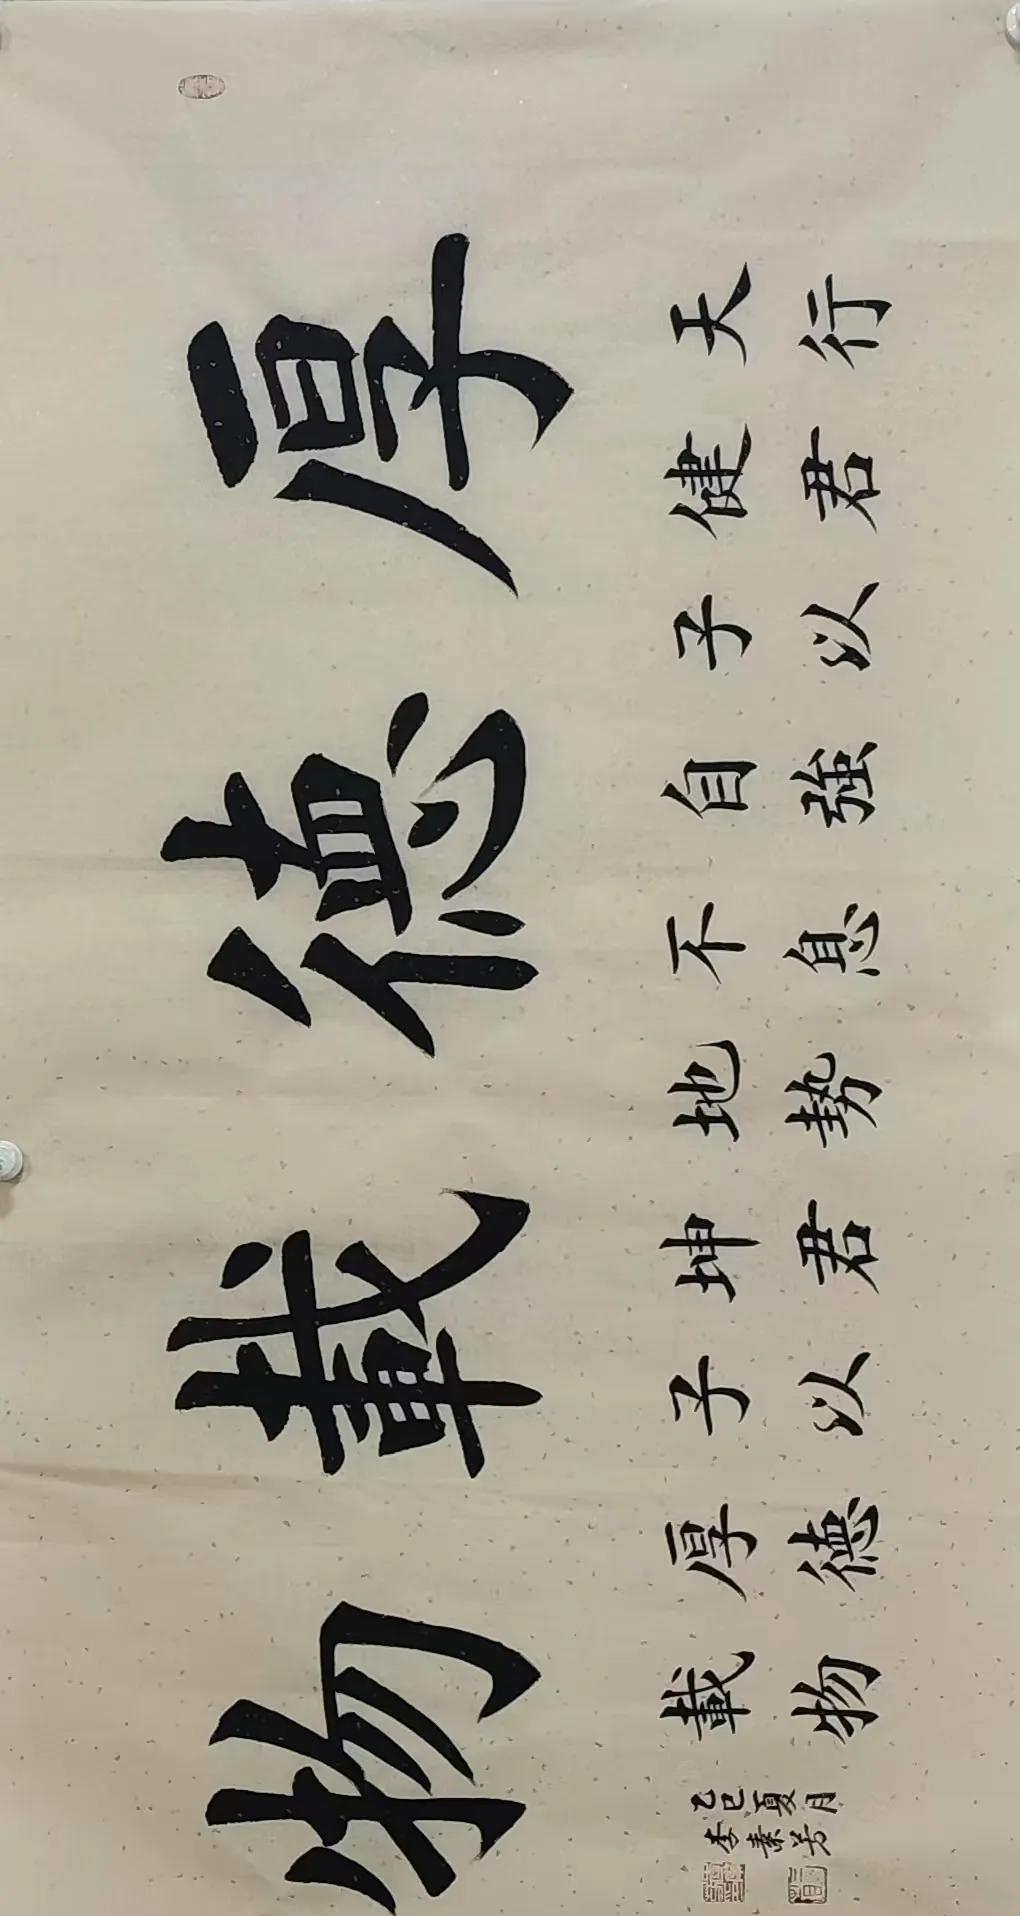 厚德載物
天行
健君
子以
自強
不息
地勢
坤君
子以
厚德
載物
乙巳夏月
李素芳